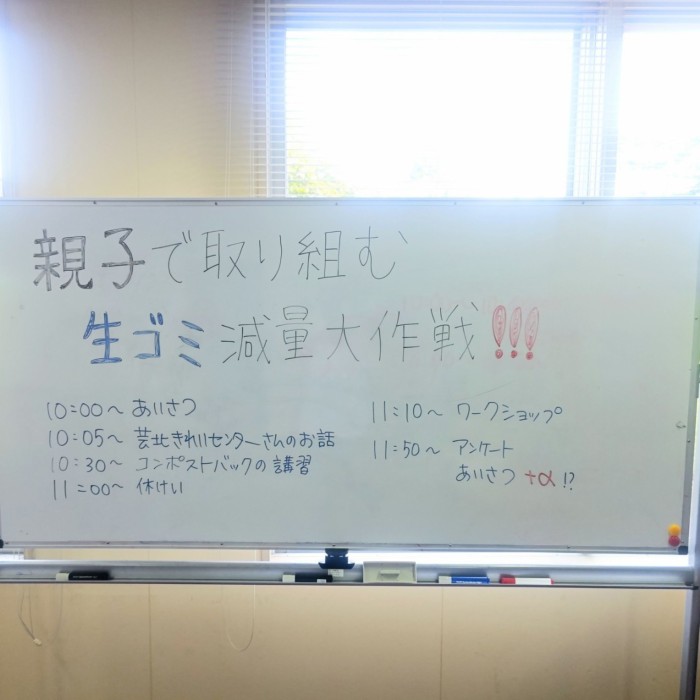 親子で取り組む
生ゴミ減量大作戦!!!
10:00～ あいさつ
10:05～ 芸北きれいセンターさんのお話
10:30～ コンポストバックの講習
11:00～ 休けい
11:10～ ワークショップ
11:50～ アンケート
あいさつ +α!?